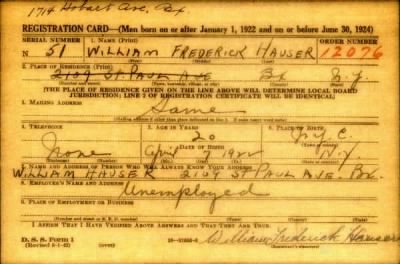 1714 Hobart Ave, Bx.
REGISTRATION CARD—(Men born on or after January 1, 1922 and on or before June 30, 1924)
SERIAL NUMBER 1. NAME (Print) ORDER NUMBER
N 51 WILLIAM FREDERICK HAUSER 12076
2. PLACE OF RESIDENCE (Print)
2109 ST. PAUL AVE Bx N.Y.
(Number and street) (Town, township, village, or city) (County) (State)
[THE PLACE OF RESIDENCE GIVEN ON THE LINE ABOVE WILL DETERMINE LOCAL BOARD
JURISDICTION; LINE 2 OF REGISTRATION CERTIFICATE WILL BE IDENTICAL]
3. MAILING ADDRESS
Same
[Mailing address if other than place indicated on line 2. If same insert word same]
4. TELEPHONE 5. AGE IN YEARS 6. PLACE OF BIRTH
20 N.Y.C.
None DATE OF BIRTH
April 7 1922 N.Y.
7. NAME AND ADDRESS OF PERSON WHO WILL ALWAYS KNOW YOUR ADDRESS
WILLIAM HAUSER 2109 ST PAUL AVE. Bx.
8. EMPLOYER'S NAME AND ADDRESS
Unemployed
9. PLACE OF EMPLOYMENT OR BUSINESS
I AFFIRM THAT I HAVE VERIFIED ABOVE ANSWERS AND THAT THEY ARE TRUE.
D. S. S. Form 1
William Frederick Hauser